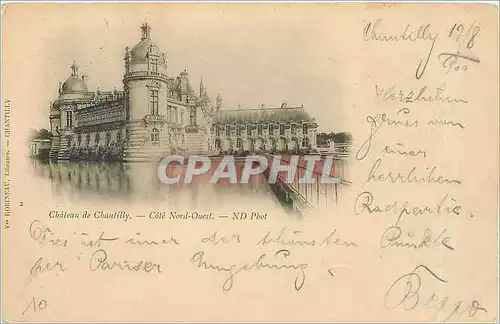 Chantilly 19/8
/900
Herzlichen
Gruss von
einer
herrlichen
Radpartie.
CPARAMA
2
Château de Chantilly. — Côté Nord-Ouest. — ND Phot
Vve ROBINEAU, Libraire. — CHANTILLY
Dies ist einer der schönsten Punkte
der Pariser Umgebung.
Beppo
10